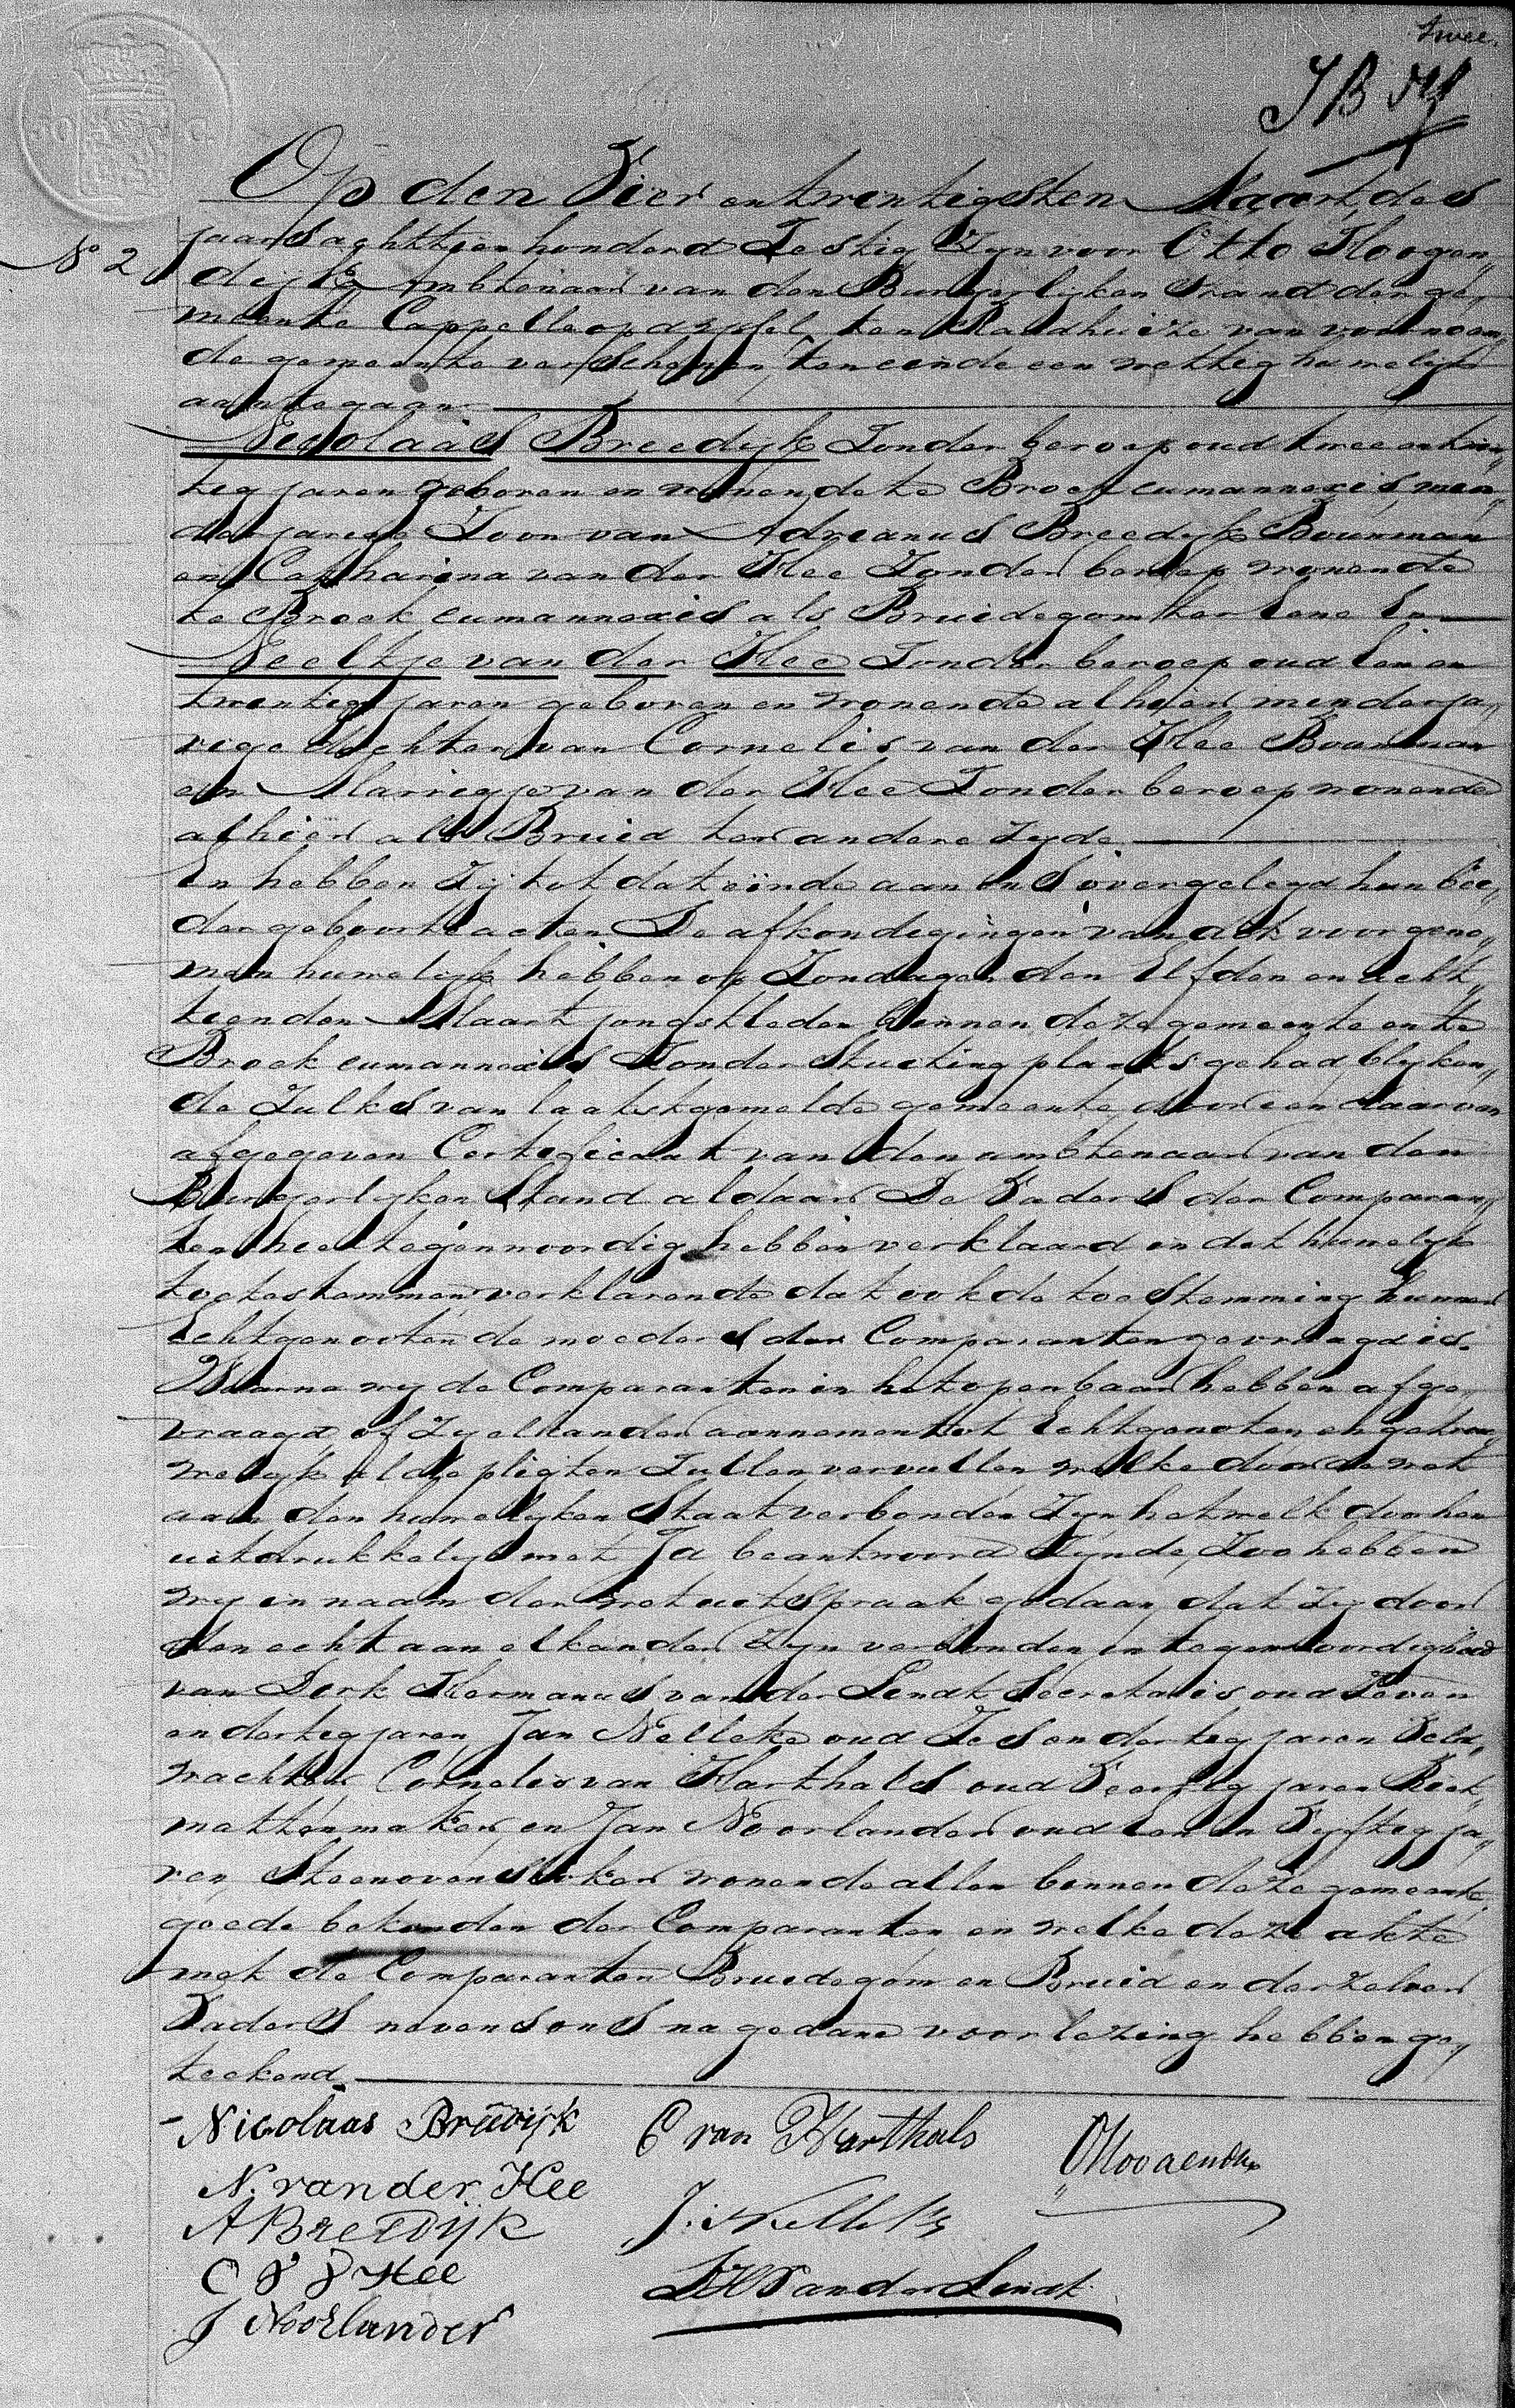 twee.
No 2
Op den Vier en twentigsten Maart des
jaars aghttien honderd Sestig Zyn voor Otto Hoogen„
dijk Ambtenaar van den Burgerlijken Stand der ge„
meente Cappelle op d Yssel, ten Raadhuize van voornoem„
de gemeente verschenen, ten einde een wettig huwelijk
aantegaan
Nicolaas Breedijk Zonder beroep oud twee en twin„
tig jaren geboren en wonende te Broek cumannexis, min„
derjarige Zoon van Adrianus Breedijk Bouwman
en Catharina van der Hee Zonder beroep wonende
te Broek cumannexis als Bruidegom ter Eene En
Neeltje van der Hee Zonder beroep oud Een en
twentig jaren geboren en wonende alhier minderja„
rige dochter van Cornelis van der Hee Bouwman
en Marrigje van der Hee Zonder beroep wonende
alhier als Bruid ter andere Zyde
En hebben Zij tot dat einde aan ons overgelegd hun bee„
der geboorte acten De afkondigingen van dit voorgeno„
men huwelijk hebben op Zondagen den Elfden en acht„
tienden Maart jongstleden binnen deze gemeente en te
Broek cumannexis Zonder Stuiting plaats gehad, blyken„
de Zulks van laatstgemelde gemeente, door een daarvan
afgegeven Certificaat van den ambtenaar van den
Burgerlyken Stand aldaar De Vaders der Comparan„
ten hier tegenwoordig hebben verklaard in dit huwelijk
toetestemmen verklarende dat ook de toestemming hunner
Echtgenooten de moeders der Comparanten gevraagd is.
Waarna wy de Comparanten in het openbaar hebben afge„
vraagd of Zy elkander aannemen tot Echtgenoten en getrou„
welyk al de pligten Zullen vervullen welke door de wet
aan den huwelyken Staat verbonden Zyn hetwelk door hen
uitdrukkelijk met Ja beantwoord Zijnde, Zoo hebben
wy in naam der wet uitspraak gedaan, dat Zy door
den echt aan elkander Zyn verbonden in tegenwoordigheid
van Dirk Hermanus van der Lindt Secretaris oud Zeven
en dertig jaren, Jan Nelleke oud Zes en dertig jaren Veld„
wachter Cornelis van Harthals oud Veertig jaren Riet„
mattenmaker en Jan Noorlander oud Een en Vijftig ja„
ren, Steenovenstoker wonende allen binnen deze gemeente,
goede bekenden der Comparanten en welke deze akte
met de Comparanten Bruidegom en Bruid en derzelver
Vaders nevens ons na gedane voorlezing hebben ge„
teekend
Nicolaas Breedijk C van Harthals OHoogendijk
N. van der Hee
A Breedijk J. Nelleke
C v d Hee DHVan der Lindt
J Noorlander